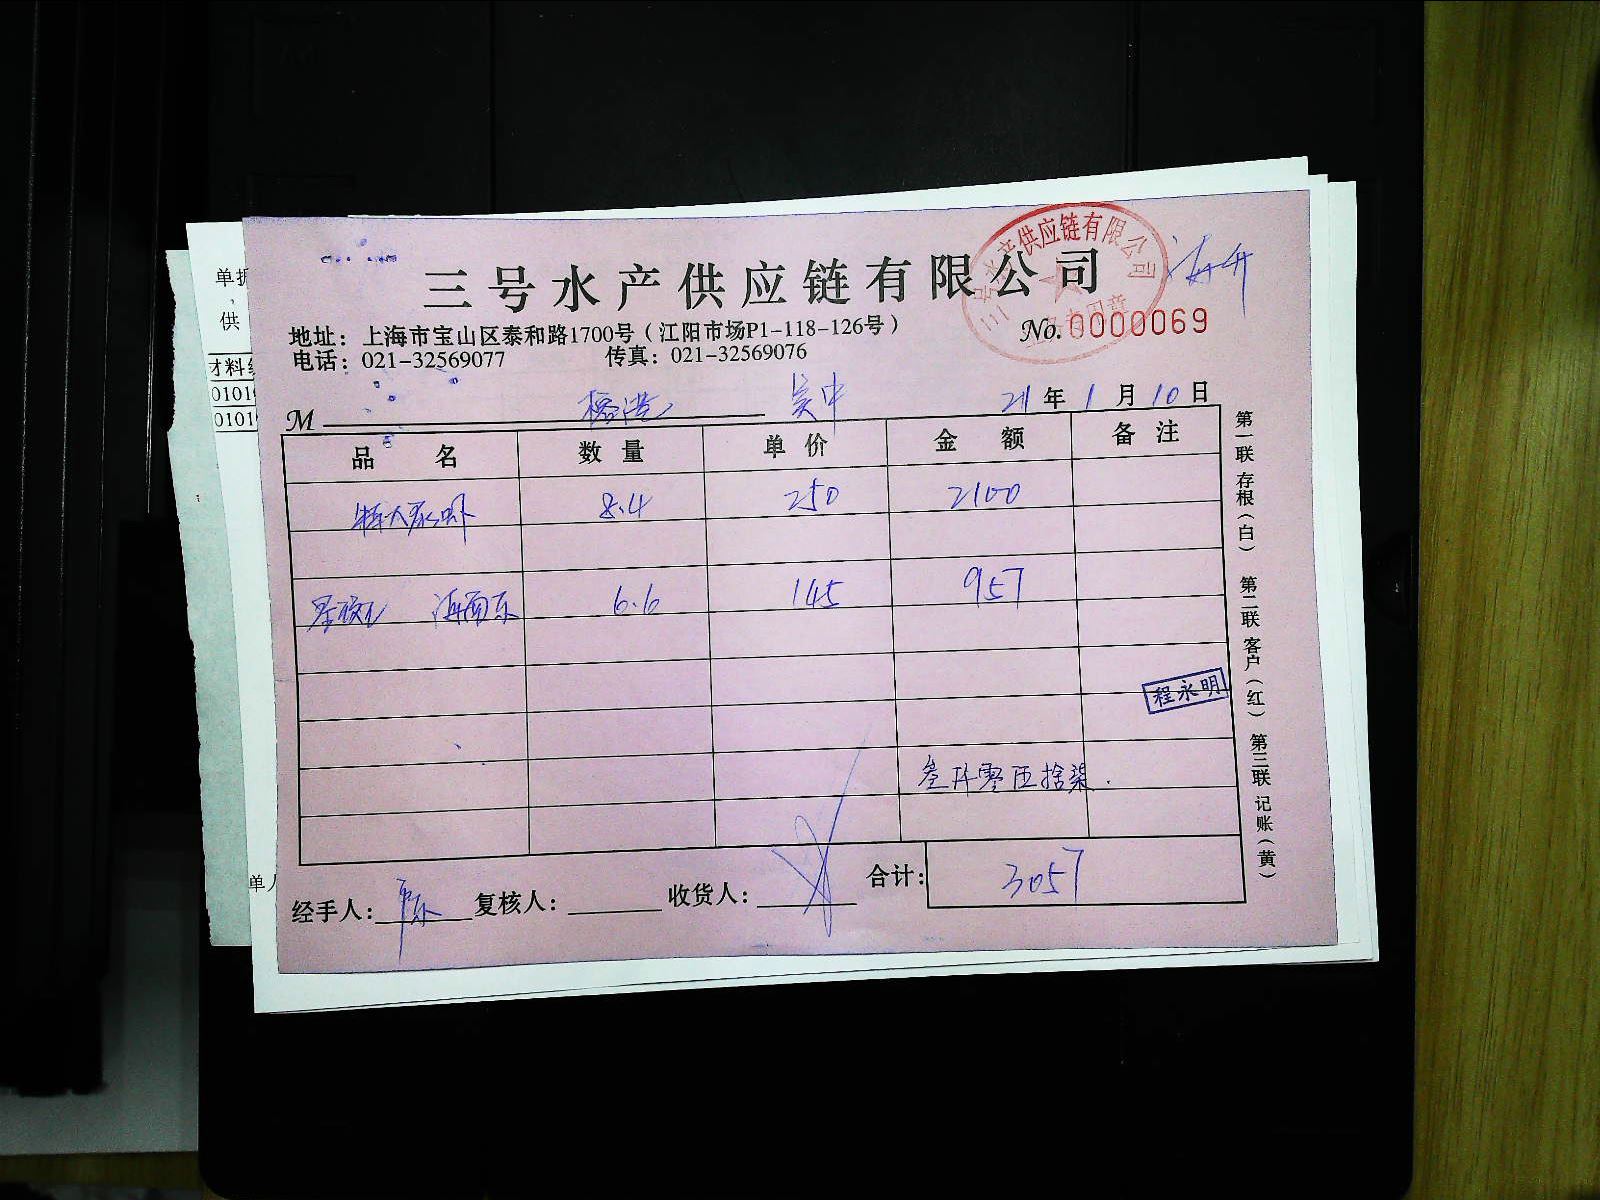 三号水产供应链有限公司
三号水产供应链有限公司
No. 0000069
地址：上海市宝山区泰和路1700号（江阳市场P1-118-126号）
电话：021-32569077 传真：021-32569076
M 吴中 21年1月10日
品名 数量 单价 金额 备注
8.4 250 2100
6.6 145 957
程永明
叁仟零伍拾柒.
合计：3057
经手人： 复核人： 收货人：
第一联 存根（白） 第二联 客户（红） 第三联 记账（黄）
单据
供
材料编
01010
01010
单人